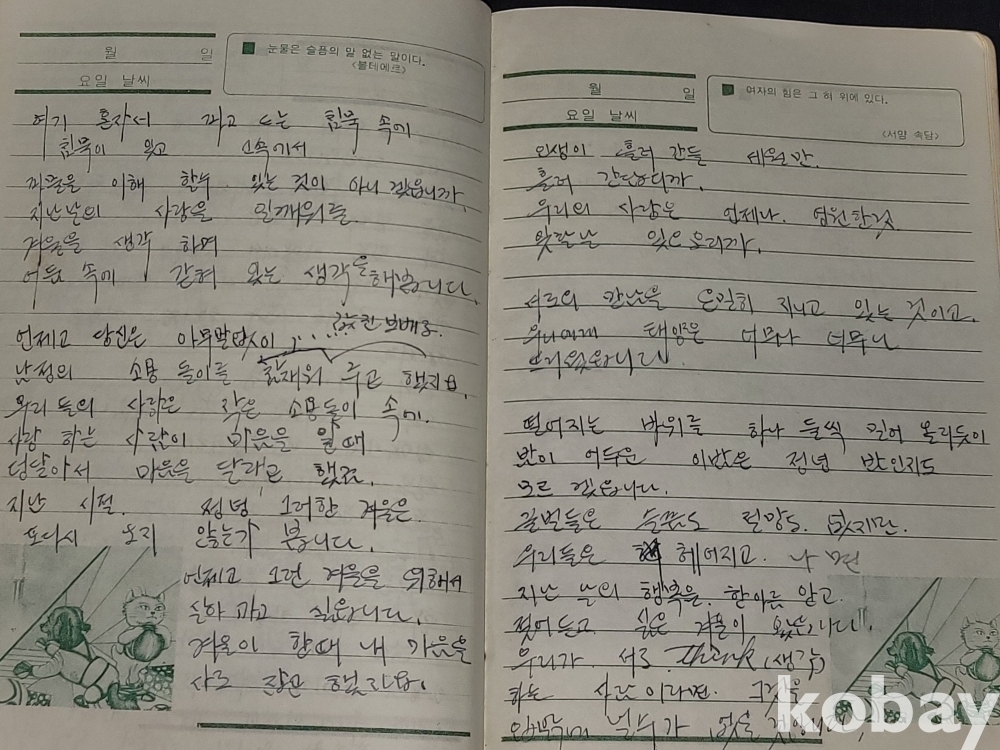 월 일
요일 날씨
눈물은 슬픔의 말 없는 말이다.
<볼테에르>
여기 혼자서 파고 드는 침묵 속에
침묵이 있고 속에서
겨울을 이해 할수 있는 것이 아니 겠읍니까.
지난날의 사랑은 일깨워줄
겨울을 생각 하며
어둠 속에 갇혀 있는 생각을해봅니다.
언제고 당신은 아무말없이
보배로.
소용돌이를 주고 했지요
우리 들의 사랑은 작은 소용돌이 속에.
사랑 하는 사람이 마음을 알때
덩달아서 마음을 달래고 했죠.
지난 시절. 정녕 그러한 겨울은
또다시 오지 않는가 봅니다.
언제고 그런 겨울을 위해서
살아 가고 싶읍니다.
겨울이 할때 내 가음을
사로 잡고 했지요.
월 일
요일 날씨
여자의 힘은 그 혀 위에 있다.
<서양 속담>
인생이 흘러 간들 세월만.
흘러 간단하리까.
우리의 사랑은 언제나. 영원한것
잊혈날 있으오리까.
서로의 만남을 은밀히 지니고 있는 것이고.
우리에게 태양은 너무나 너무나
뜨거웠읍니다.
떨어지는 바위를 하나 둘씩 밀어 올리듯이
밤이 어두운 이밤은 정녕 밤인지도
모르 겠읍니다.
길벗들은 슬픔도 절망도. 없지만.
우리들은 헤어지고. 나 면
지난 날의 행복을 한아름 안고.
찢어들고 싶은 겨울이 옵니다.
우리가 서로 Think (생각)
하는 사란이라면. 그것은
날수가 없을 것입니다.
kobay